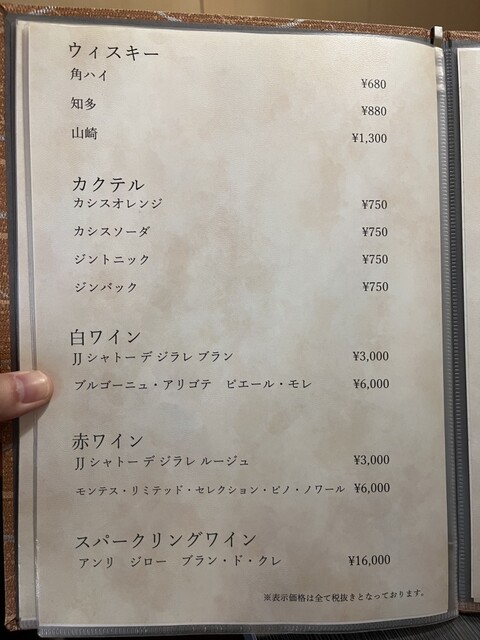 ウィスキー
角ハイ ¥680
知多 ¥880
山崎 ¥1,300
カクテル
カシスオレンジ ¥750
カシスソーダ ¥750
ジントニック ¥750
ジンバック ¥750
白ワイン
JJ シャトー デ ジラレ ブラン ¥3,000
ブルゴーニュ・アリゴテ　ピエール・モレ ¥6,000
赤ワイン
JJ シャトー デ ジラレ ルージュ ¥3,000
モンテス・リミテッド・セレクション・ピノ・ノワール ¥6,000
スパークリングワイン
アンリ　ジロー　ブラン・ド・クレ ¥16,000
※表示価格は全て税抜きとなっております。